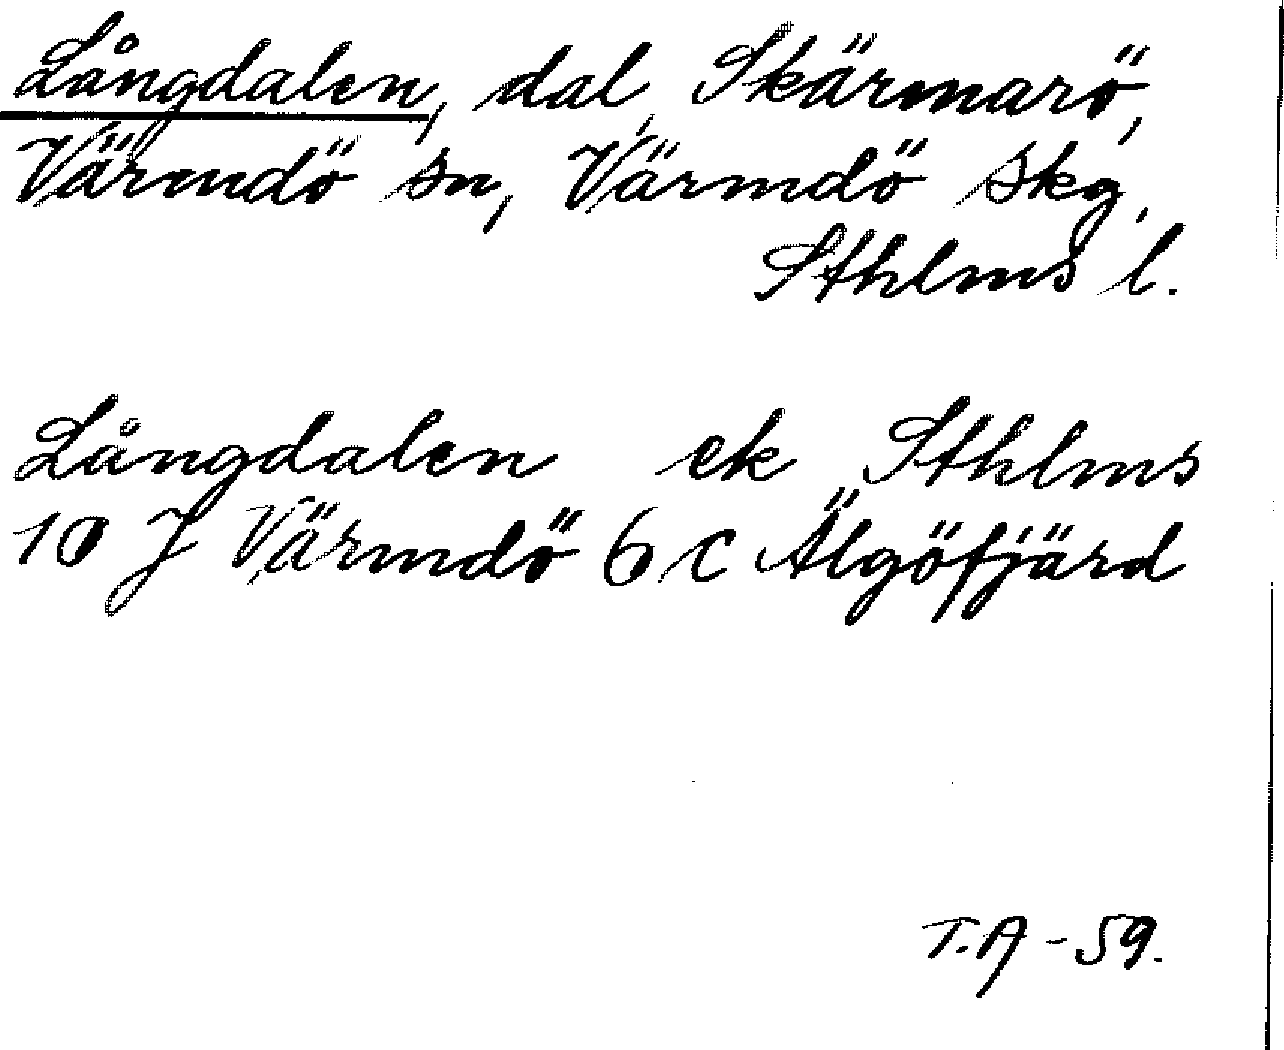 Långdalen, dal, Skärmarö,
Värmdö sn, Värmdö skg,
Sthlms l.
Långdalen ek Sthlms
10 J Värmdö 6 c Älgöfjärd
T.A - 59.